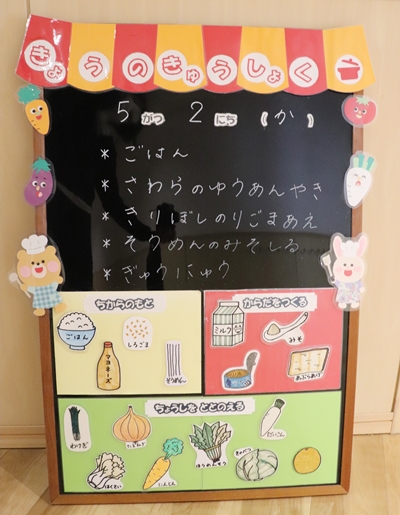 きょうのきゅうしょく
5がつ 2にち (か)
* ごはん
* さわらのゆうあんやき
* きりぼしのりごまあえ
* そうめんのみそしる
* ぎゅうにゅう
ちからのもと
ごはん
しろごま
マヨネーズ
そうめん
からだをつくる
ミルク
みそ
あぶらあげ
ちょうしを ととのえる
だいこん
ほうれんそう
きゃべつ
はくさい
にんじん